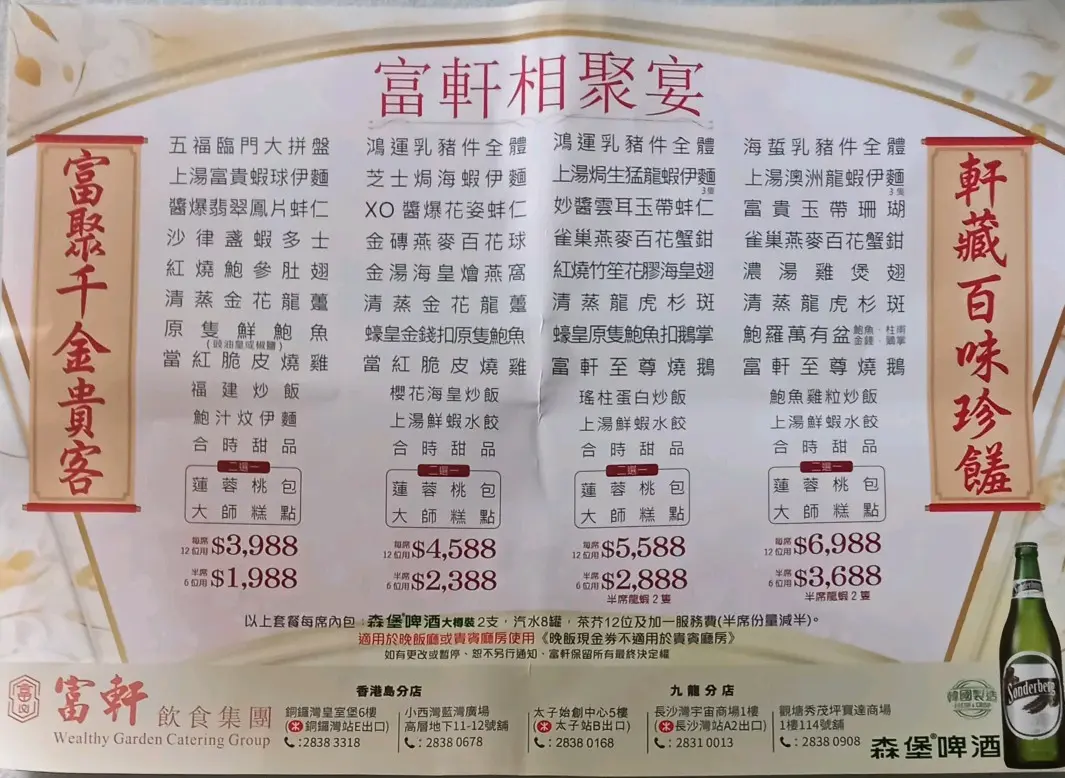 富軒相聚宴
富聚千金貴客
五福臨門大拼盤
上湯富貴蝦球伊麵
醬爆翡翠鳳片蚌仁
沙律盞蝦多士
紅燒鮑參肚翅
清蒸金花龍躉
原隻鮮鮑魚
(豉油皇或椒鹽)
當紅脆皮燒雞
福建炒飯
鮑汁炆伊麵
合時甜品
二選一
蓮蓉桃包
大師糕點
每席12位用 $3,988
半席6位用 $1,988
鴻運乳豬件全體
芝士焗海蝦伊麵
XO醬爆花姿蚌仁
金磚燕麥百花球
金湯海皇燴燕窩
清蒸金花龍躉
蠔皇金錢扣原隻鮑魚
當紅脆皮燒雞
櫻花海皇炒飯
上湯鮮蝦水餃
合時甜品
二選一
蓮蓉桃包
大師糕點
每席12位用 $4,588
半席6位用 $2,388
鴻運乳豬件全體
上湯焗生猛龍蝦伊麵
3隻
妙醬雲耳玉帶蚌仁
雀巢燕麥百花蟹鉗
紅燒竹笙花膠海皇翅
清蒸龍虎杉斑
蠔皇原隻鮑魚扣鵝掌
富軒至尊燒鵝
瑤柱蛋白炒飯
上湯鮮蝦水餃
合時甜品
二選一
蓮蓉桃包
大師糕點
每席12位用 $5,588
半席6位用 $2,888
半席龍蝦2隻
海蜇乳豬件全體
上湯澳洲龍蝦伊麵
3隻
富貴玉帶珊瑚
雀巢燕麥百花蟹鉗
濃湯雞煲翅
清蒸龍虎杉斑
鮑羅萬有盆 鮑魚、柱甫 金錢、鵝掌
富軒至尊燒鵝
鮑魚雞粒炒飯
上湯鮮蝦水餃
合時甜品
二選一
蓮蓉桃包
大師糕點
每席12位用 $6,988
半席6位用 $3,688
半席龍蝦2隻
軒藏百味珍饈
以上套餐每席內包：森堡®啤酒大樽裝2支，汽水8罐，茶芥12位及加一服務費(半席份量減半)。
適用於晚飯廳或貴賓廳房使用《晚飯現金券不適用於貴賓廳房》
如有更改或暫停、恕不另行通知、富軒保留所有最終決定權
富軒飲食集團
Wealthy Garden Catering Group
香港島分店
銅鑼灣皇室堡6樓
(銅鑼灣站E出口)
: 2838 3318
小西灣藍灣廣場
高層地下11-12號舖
: 2838 0678
九龍分店
太子始創中心5樓
(太子站B出口)
: 2838 0168
長沙灣宇宙商場1樓
(長沙灣站A2出口)
: 2831 0013
觀塘秀茂坪寶達商場
1樓114號舖
: 2838 0908
韓國製造
森堡®啤酒
Sonderberg